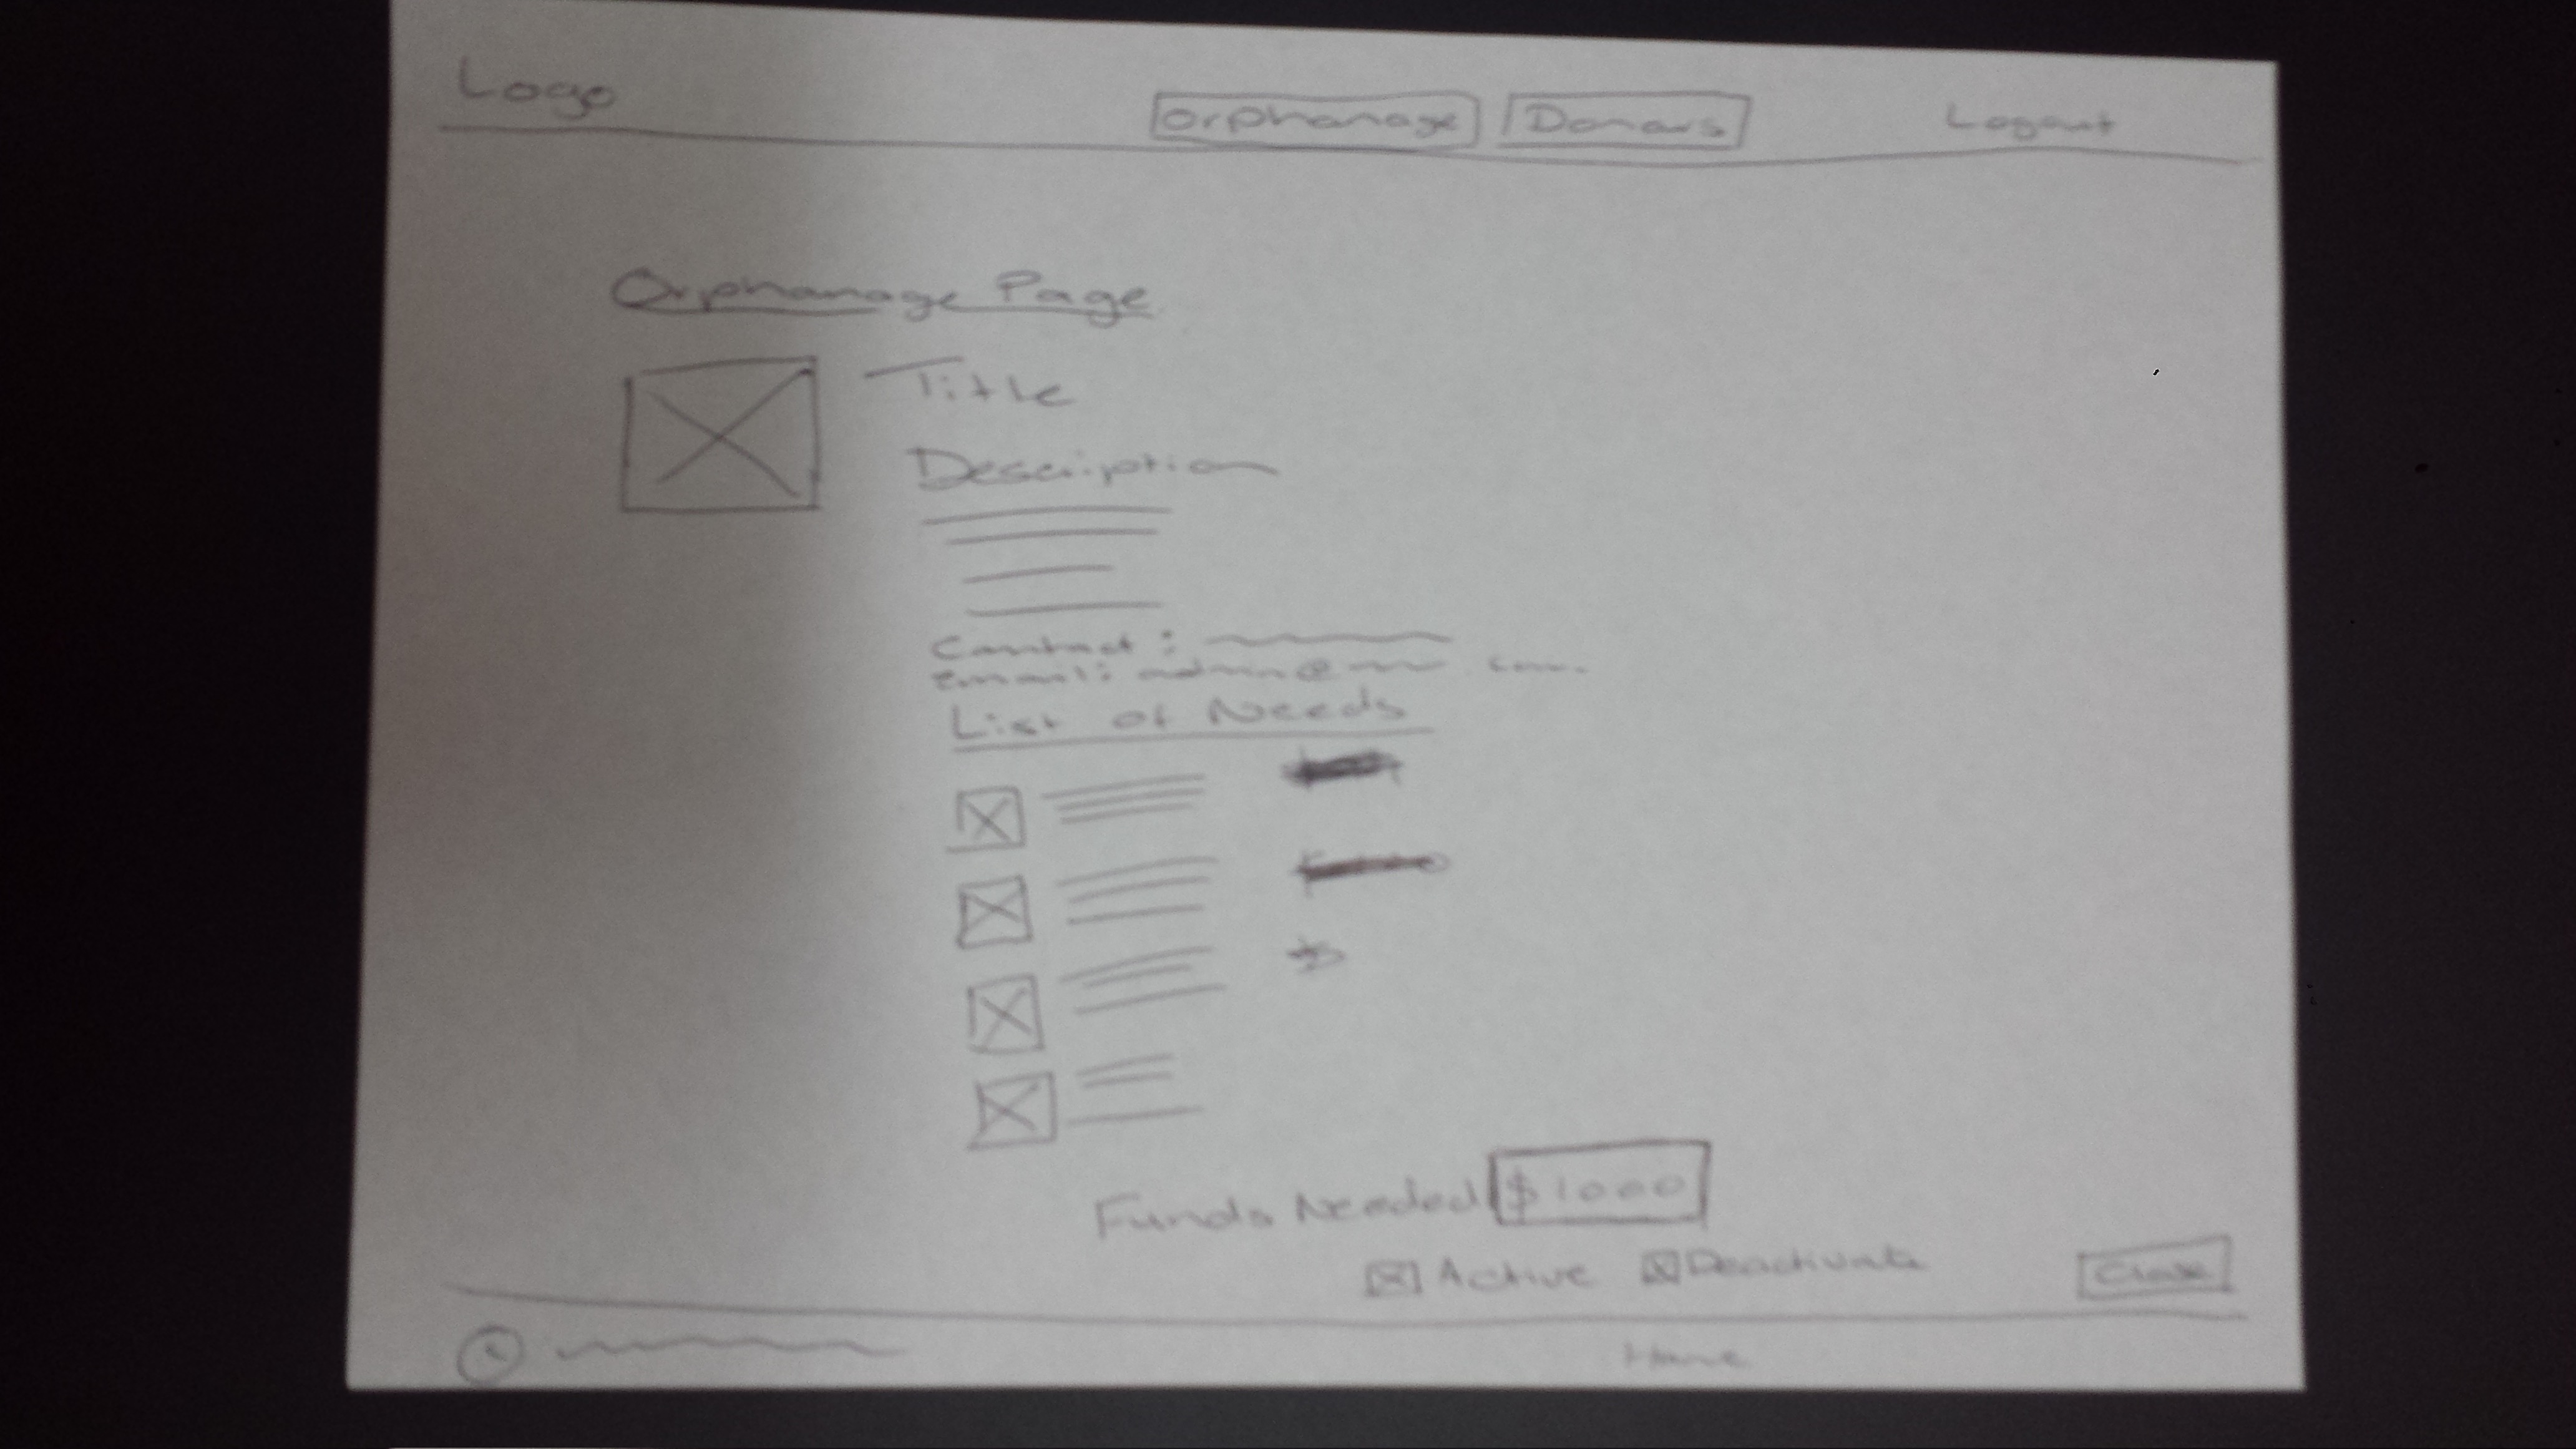 Logo
Orphanage Donors Logout
Orphanage Page
Title
Description
Contact :
Email: admin@ com.
List of Needs
$
Funds Needed $1000
Active Deactivate Close
© Home